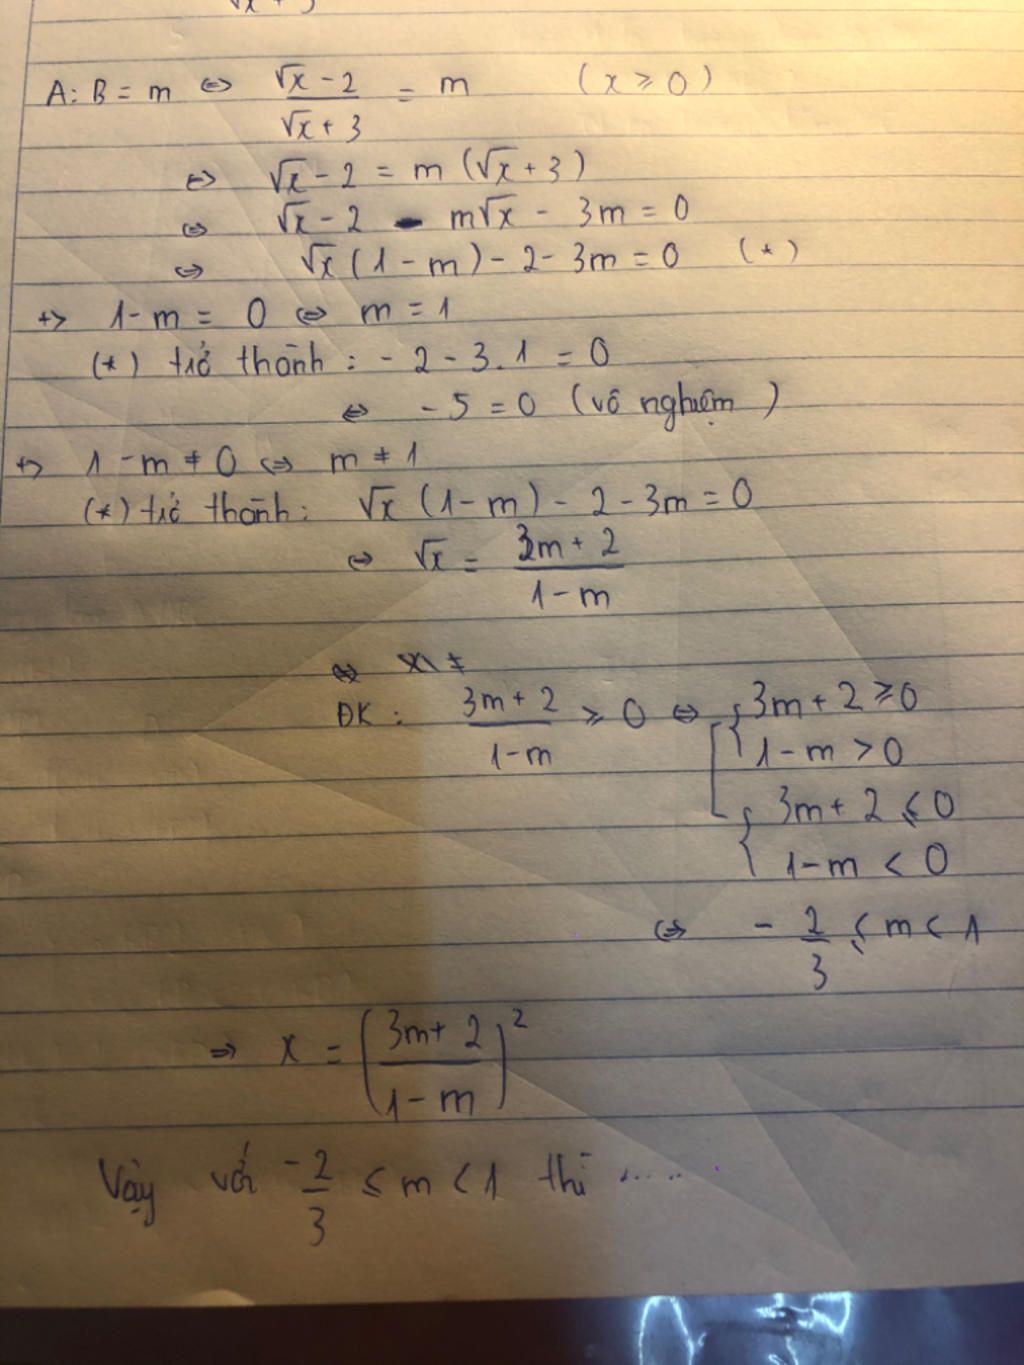 √x + 3
A : B = m ⇔ (√x - 2)/(√x + 3) = m (x ≥ 0)
⇔ √x - 2 = m (√x + 3)
⇔ √x - 2 - m√x - 3m = 0
⇔ √x (1 - m) - 2 - 3m = 0 (*)
+> 1 - m = 0 ⇔ m = 1
(*) trở thành : - 2 - 3.1 = 0
⇔ - 5 = 0 (vô nghiệm)
+> 1 - m ≠ 0 ⇔ m ≠ 1
(*) trở thành : √x (1 - m) - 2 - 3m = 0
⇔ √x = (3m + 2)/(1 - m)
ĐK : (3m + 2)/(1 - m) ≥ 0 ⇔ [ { 3m + 2 ≥ 0
1 - m > 0
{ 3m + 2 ≤ 0
1 - m < 0
⇔ - 2/3 ≤ m < 1
⇒ x = ((3m + 2)/(1 - m))²
Vậy với -2/3 ≤ m < 1 thì .....